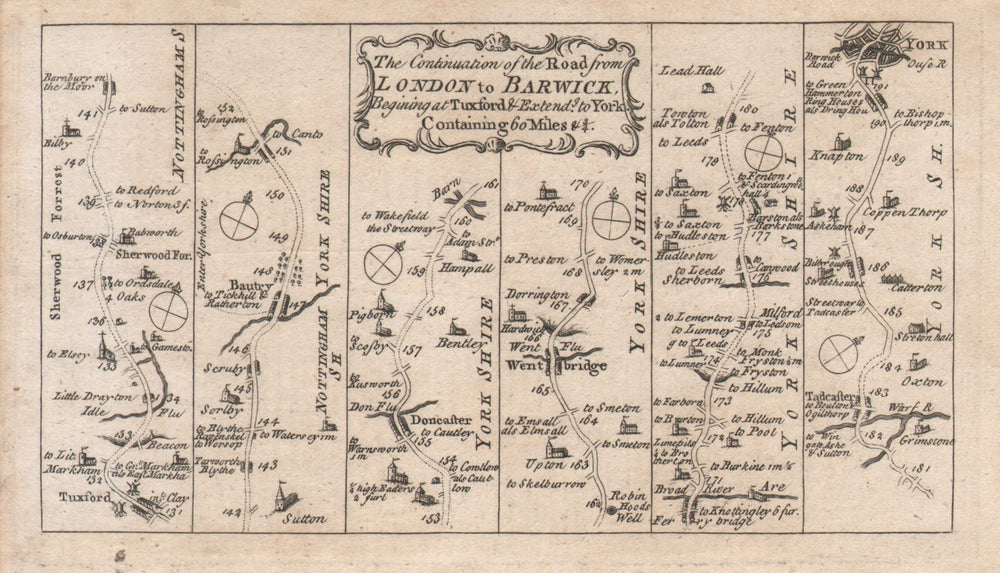 The Continuation of the Road from
LONDON to BARWICK,
Begining at Tuxford & Extend.g to York
Containing 60 Miles & ¾.
Barnbury on
the Moor
to Sutton
141
Bilby
140
to Redford
139
to Norton 3 f.
to Osburton
138
Babworth
Sherwood For.
137
to Ordsdale
4 Oaks
136
to Gamesto.
to Elsey
135
Little Drayton
134
Idle
Flu
133
Beacon
to Lit.
Markham
132
to Gr.t Markham
als East Markha
Tuxford
in ye Clay
131
Sherwood Forrest
NOTTINGHAM S
152
to Rosington
to Canto
to Rosington
151
150
Enter Yorkshire
149
148
Bautry
to Tickhill &
Ratherton
147
146
Scruby
145
Sorlby
144
to Blythe
Ragenskel
to Worsop
to Watersey 1 m
Tarworth
Blythe
143
142
Sutton
NOTTINGHAM SH
YORK SHIRE
Barn
161
to Wakefield
the Streetway
160
to Adam Str.
159
Hampall
Pigborn
158
to Scosby
157
Bentley
to Kusworth
156
Don Flu
Doncaster
to Cautley
to Warnsworth
1 m
155
154
to Cowlow
als Caut
low
½ high Eaders
2 furl
153
YORK SHIRE
170
to Pontefract
169
to Preston
168
to Womer
sley 2 m
Dorrington
167
Hardwick
166
Went Flu
Went bridge
165
to Smeton
to Emsall
als Elmsall
164
to Smeton
Upton
163
to Skelburrow
162
Robin
Hoods
Well
YORK SHIRE
Lead Hall
180
Towton
als Tolton
to Fenton
to Leeds
179
to Saxton
to Fenton 1
& Scardingwe
hall ¼
178
½ to Saxton
to Hudleston
Barston als
Barkstone
Hudleston
177
to Leeds
Sherborn
to Cawood
176
2 to Lemerton
to Lumney
Milford
to Ledsom
175
9 to Leeds
to Lumner
174
to Monk
Fryston ½ m
to Fryston
to Hillum
to Farborn
173
to Burton
to Hillum
to Pool
Lumepits
½ to Bro
therton
172
to Burkine 1 m ½
Broad
171
River
Are
Fer
ry bridge
to Knottingley 6 fur.
YORK SHIRE
Barwick
Road
YORK
Ouse R
to Green
Hammerton
Ring Houses
als Dring Hou
191
190
to Bishop
thorp 1 m.
Knapton
189
188
to Askeham
Coppen Thorp
187
Bilbrough
to Streethouses
186
Catterton
Streetway to
Tadcaster
185
Streton hall
184
Oxton
Tadcaster
to Bouton
Ogilthorp
183
Warf R
to Win
onto Ashe
& Sutton
182
Grimstone
181
YORK SH.